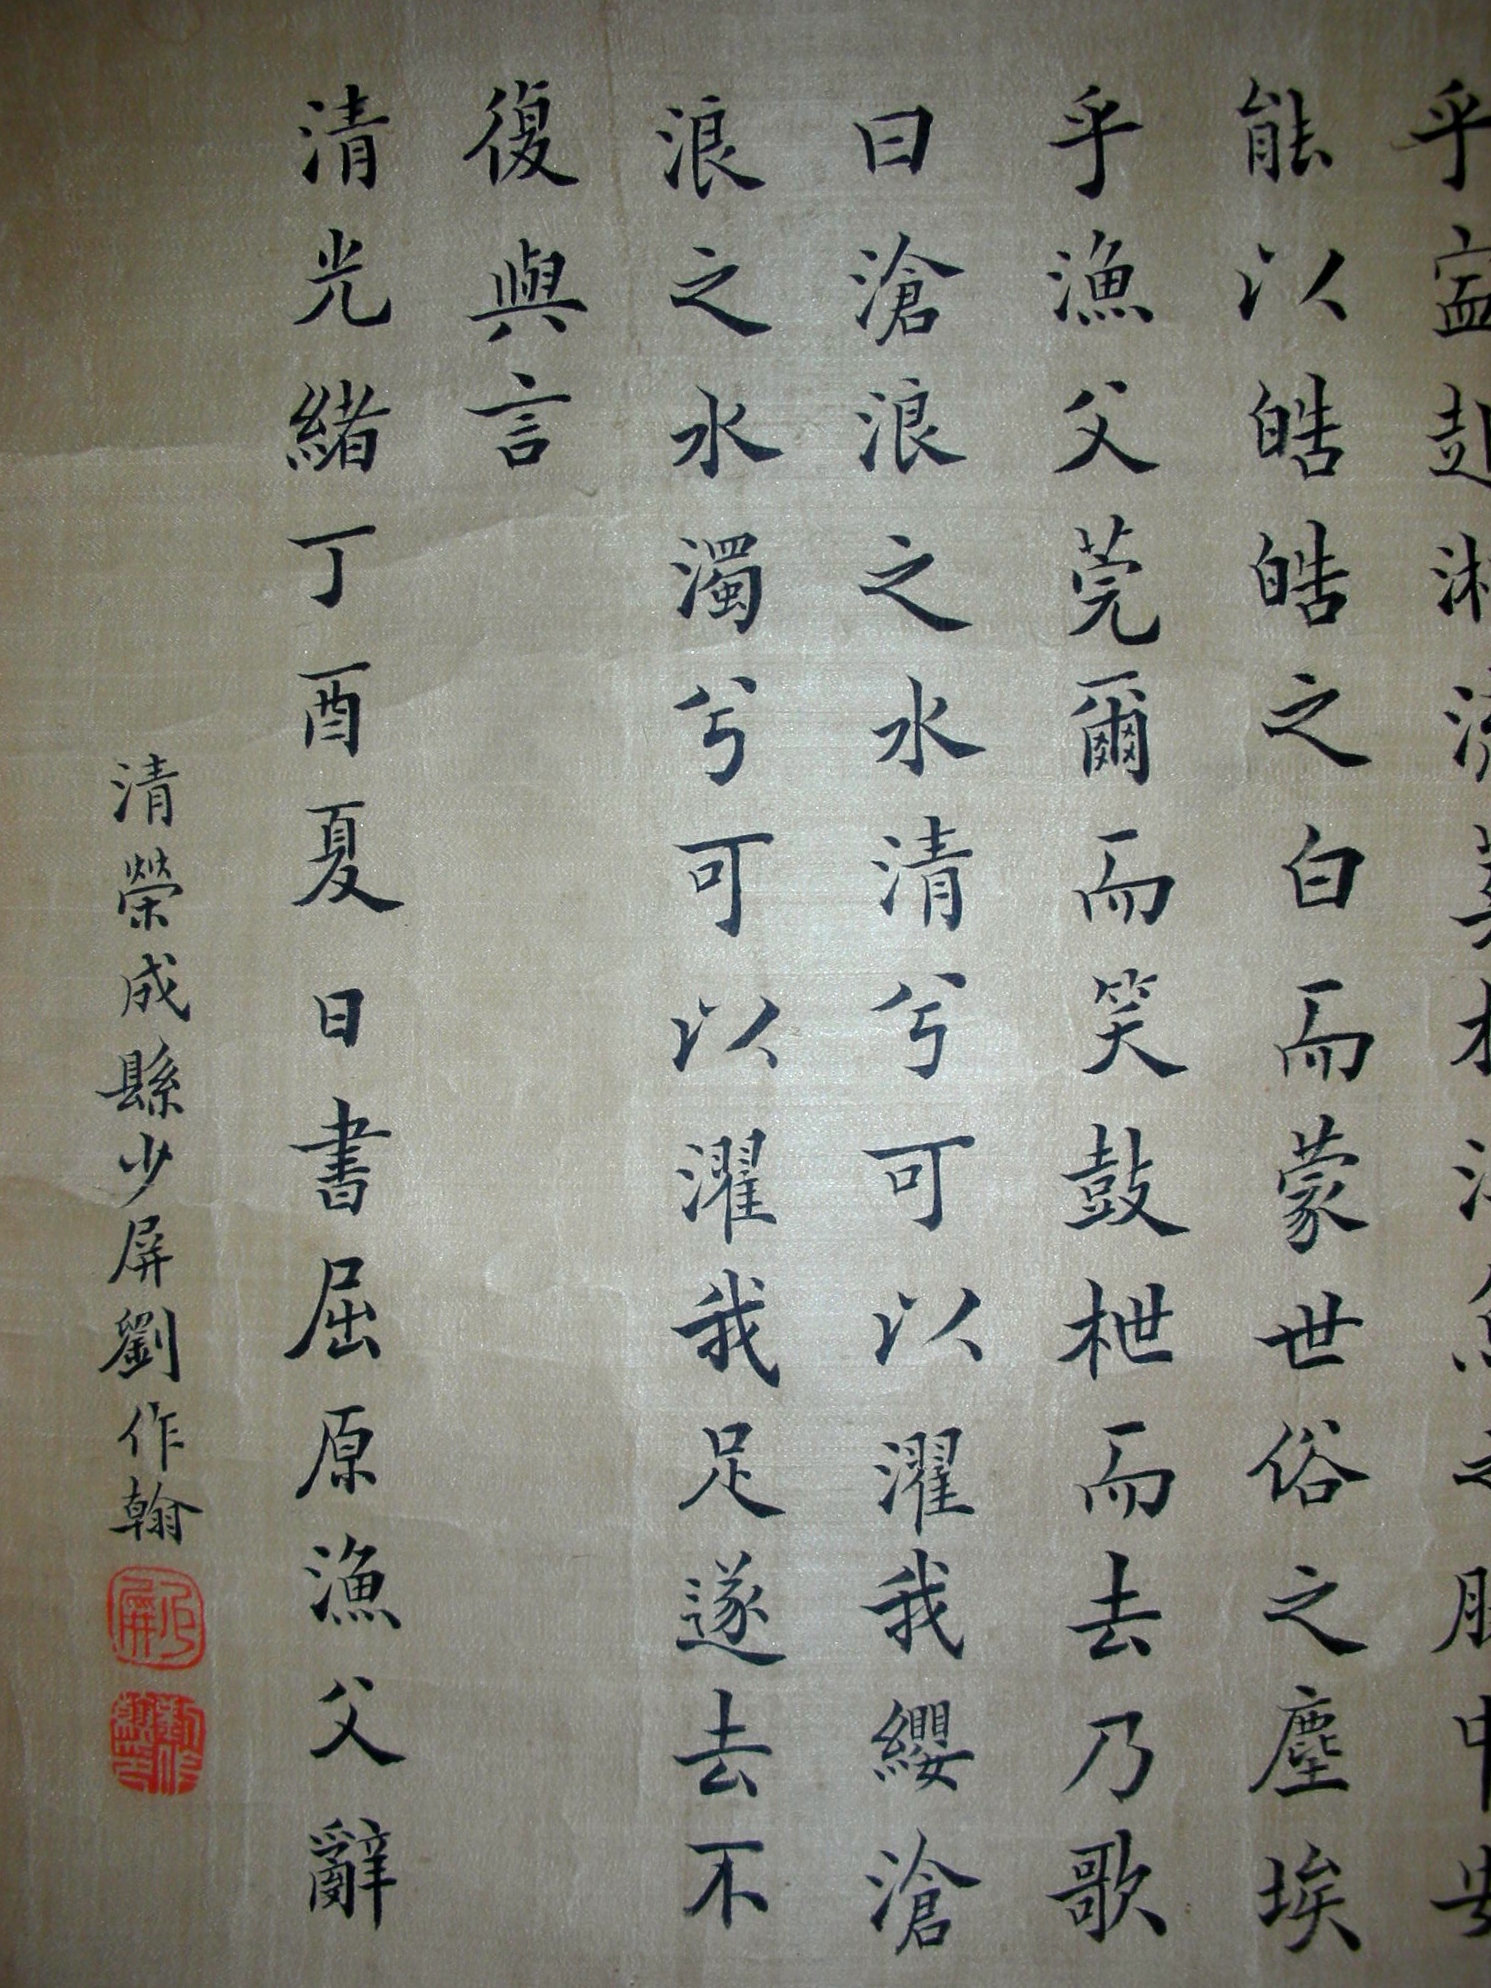 乎寍赴湘流葬於江魚之腹中安
能以皓皓之白而蒙世俗之塵埃
乎漁父莞爾而笑鼓枻而去乃歌
曰滄浪之水清兮可以濯我纓滄
浪之水濁兮可以濯我足遂去不
復與言
清光緒丁酉夏日書屈原漁父辭
清榮成縣少屏劉作翰